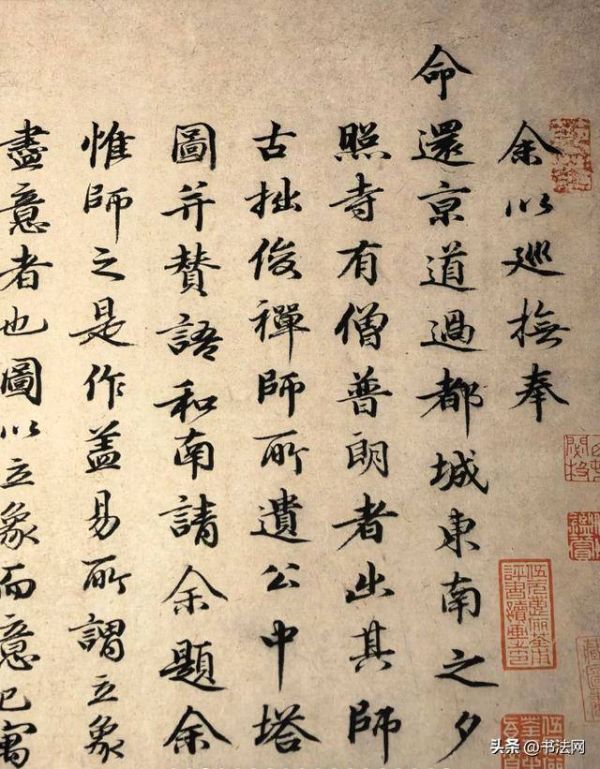 余以巡撫奉
命還京道過都城東南之夕
照寺有僧普朗者出其師
古拙俊禪師所遺公中塔
圖并賛語和南請余題余
惟師之是作盖易所謂立象
盡意者也圖以立象而意已寓
鑑賞
头条 @书法网